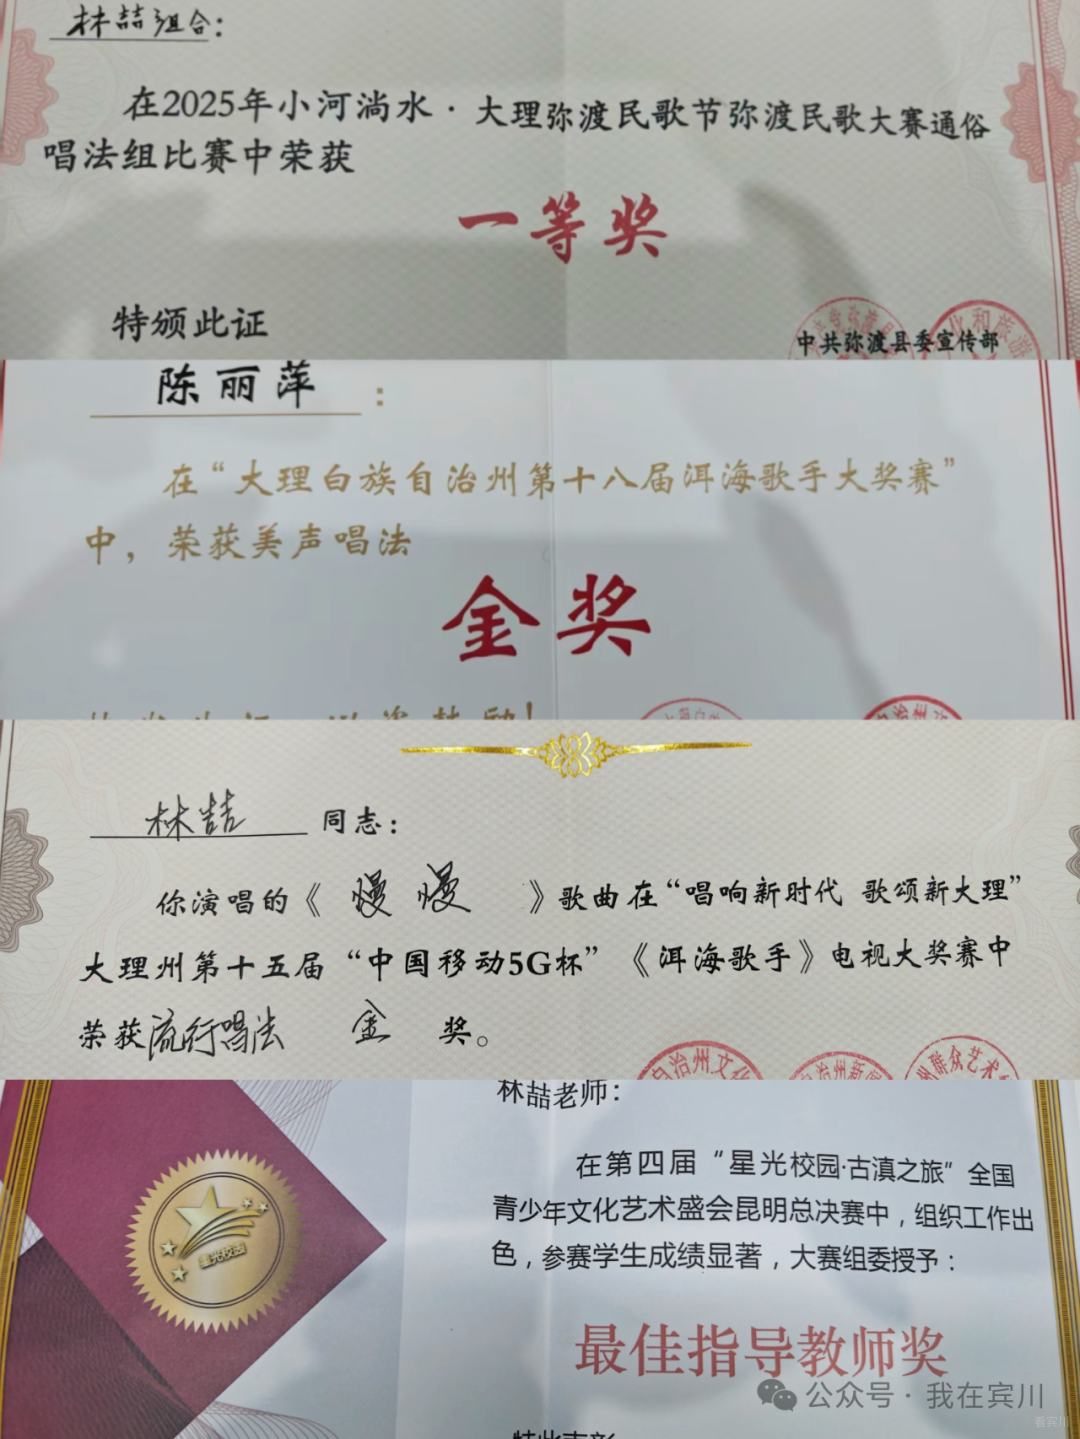 林喆组合：
在2025年小河淌水·大理弥渡民歌节弥渡民歌大赛通俗
唱法组比赛中荣获
一等奖
特颁此证
中共弥渡县委宣传部
化和旅游
陈丽萍：
在“大理白族自治州第十八届洱海歌手大奖赛”
中，荣获美声唱法
金奖
林喆 同志：
你演唱的《 慢慢 》歌曲在“唱响新时代 歌颂新大理”
大理州第十五届“中国移动5G杯”《洱海歌手》电视大奖赛中
荣获流行唱法 金 奖。
自治州文化
州群众艺术
林喆老师：
在第四届“星光校园·古滇之旅”全国
青少年文化艺术盛会昆明总决赛中，组织工作出
色，参赛学生成绩显著，大赛组委授予：
星光校园
最佳指导教师奖
公众号·我在宾川
看宾川